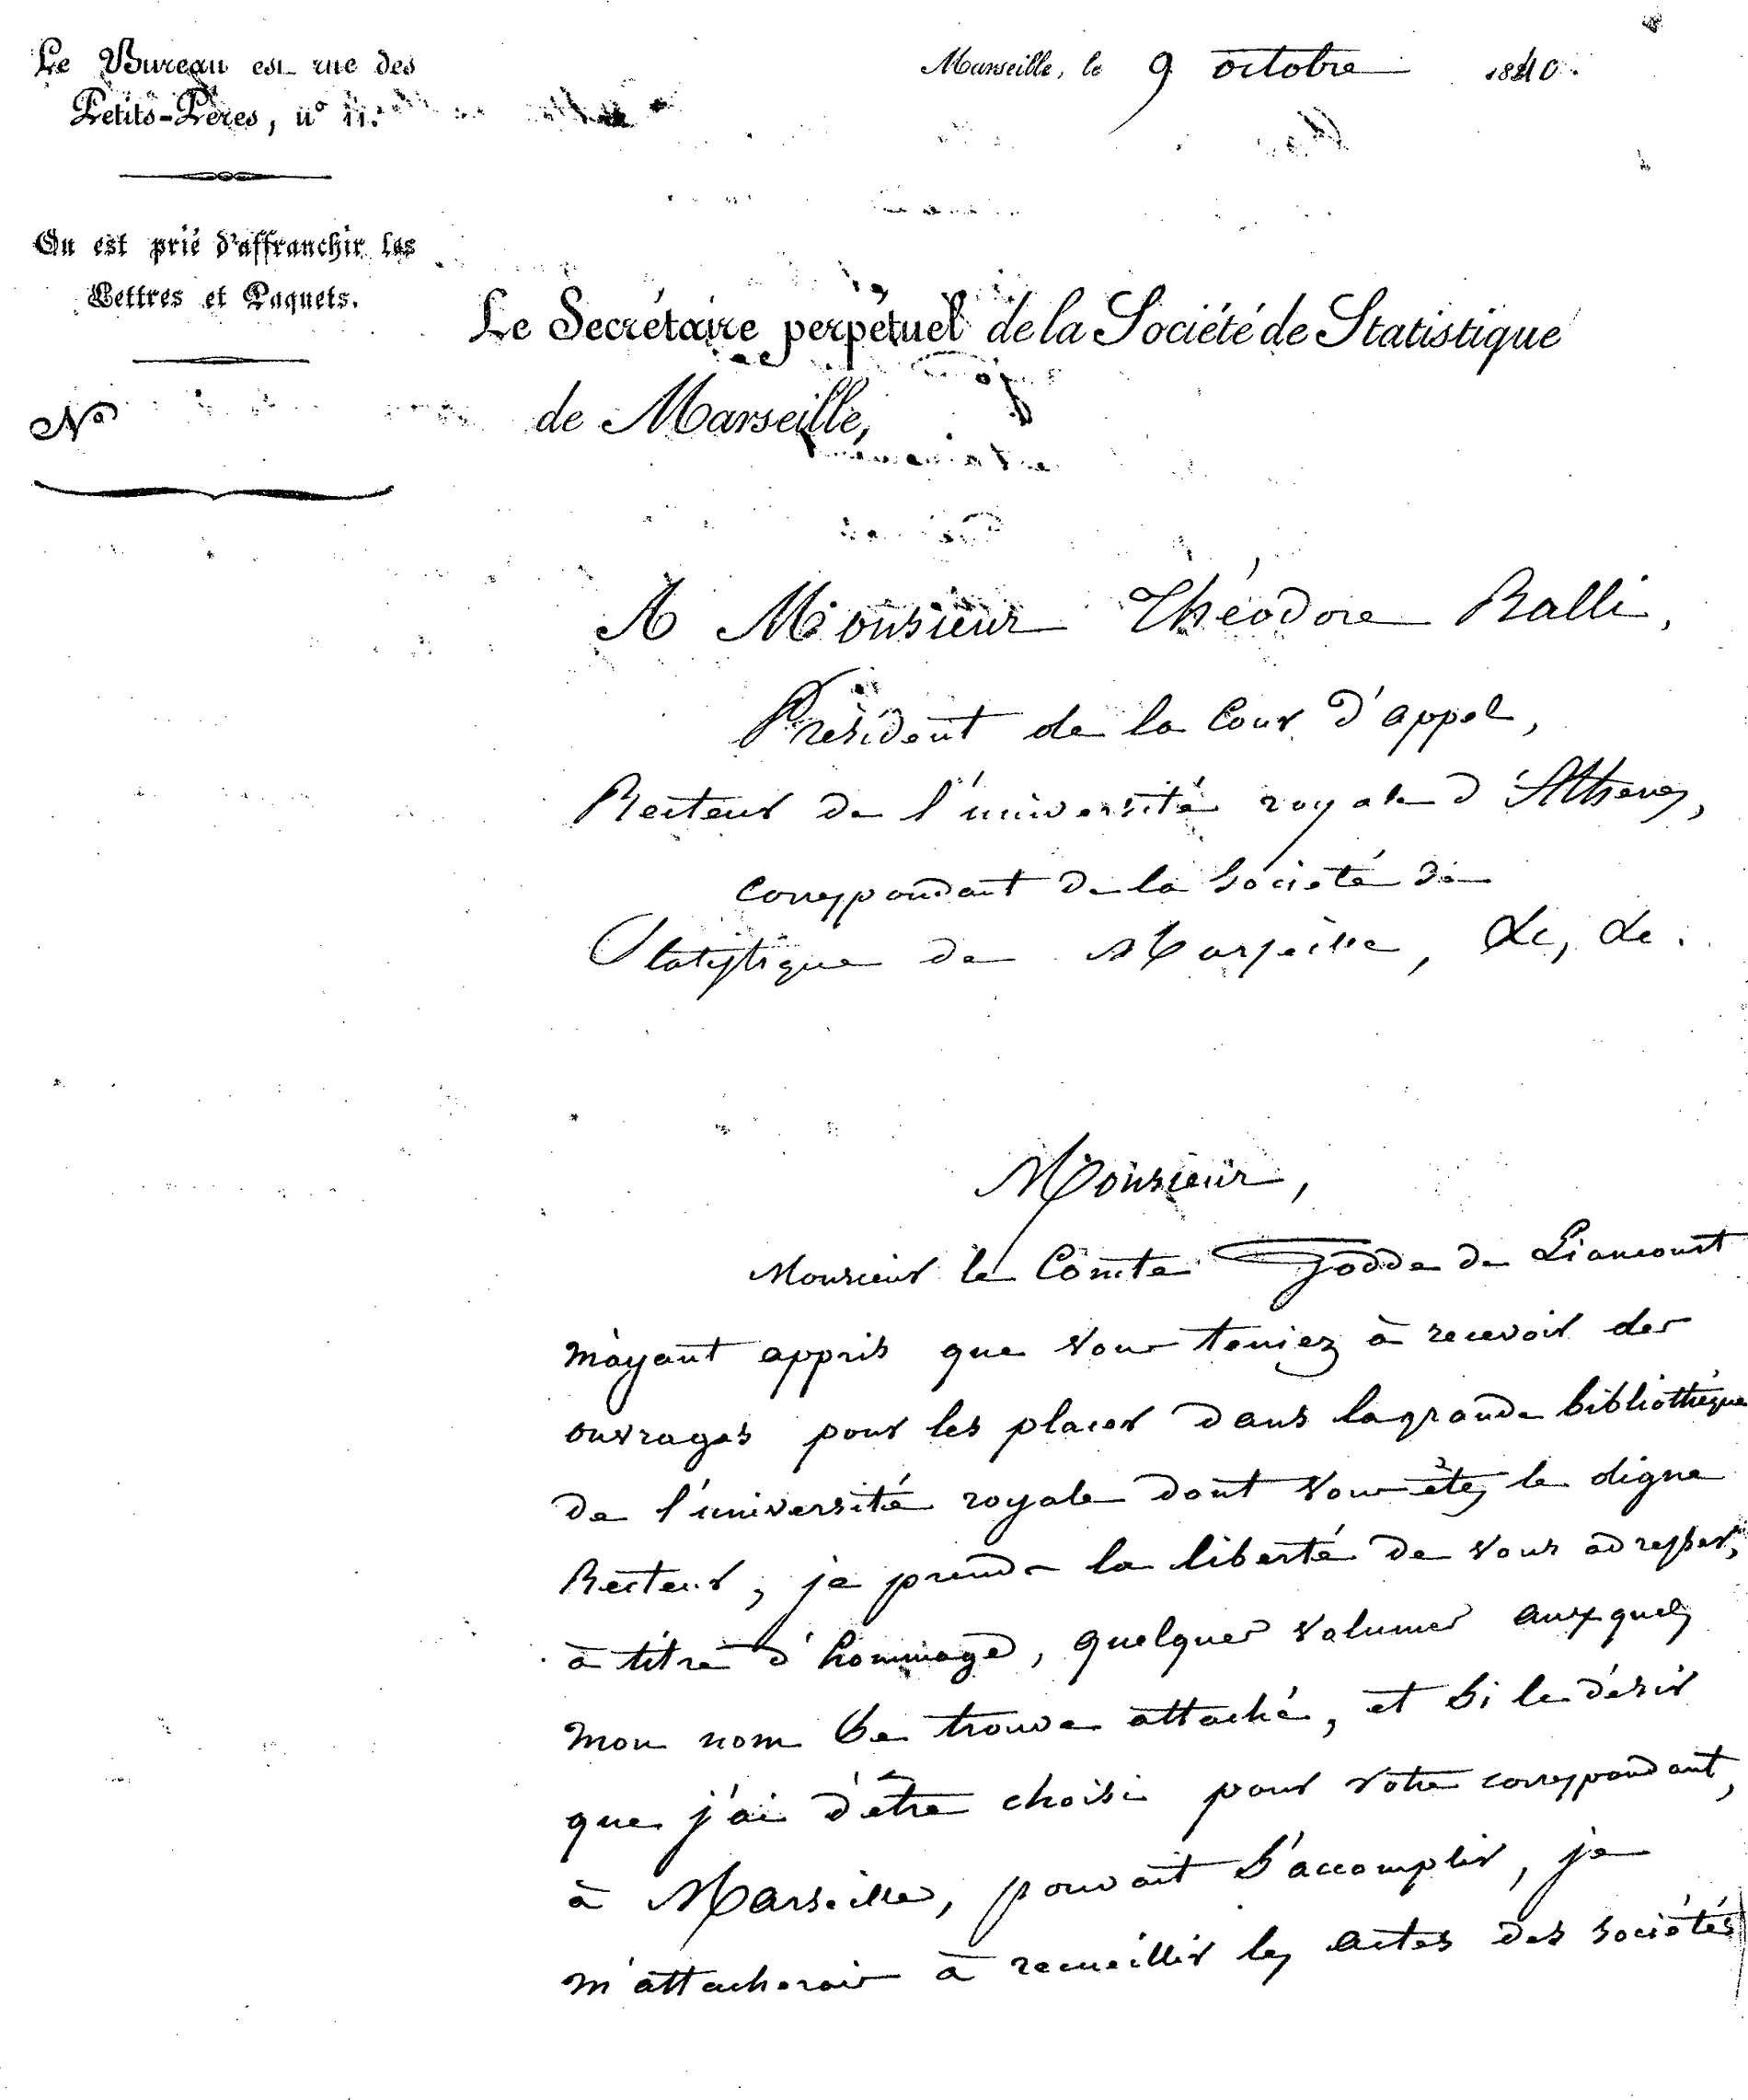 Le Bureau est rue des
Petits-Pères, n° 11.
On est prié d'affranchir les
Lettres et Paquets.
N°
Marseille, le 9 octobre 1840.
Le Secrétaire perpétuel de la Société de Statistique
de Marseille,
A Monsieur Théodore Ralli,
Président de la Cour d'appel,
Recteur de l'université royale d'Athenes,
correspondant de la Société de
Statistique de Marseille, &c, &c.
Monsieur,
Monsieur le Comte Godde de Liancourt
m'ayant appris que vous teniez à recevoir des
ouvrages pour les placer dans la grande bibliothèque
de l'université royale dont vous êtes le digne
Recteur, je prends la liberté de vous adresser,
à titre d'hommage, quelques volumes auxquels
mon nom se trouve attaché, et si le désir
que j'ai d'être choisi pour votre correspondant,
à Marseille, pouvait s'accomplir, je
m'attacherais à recueillir les actes des sociétés